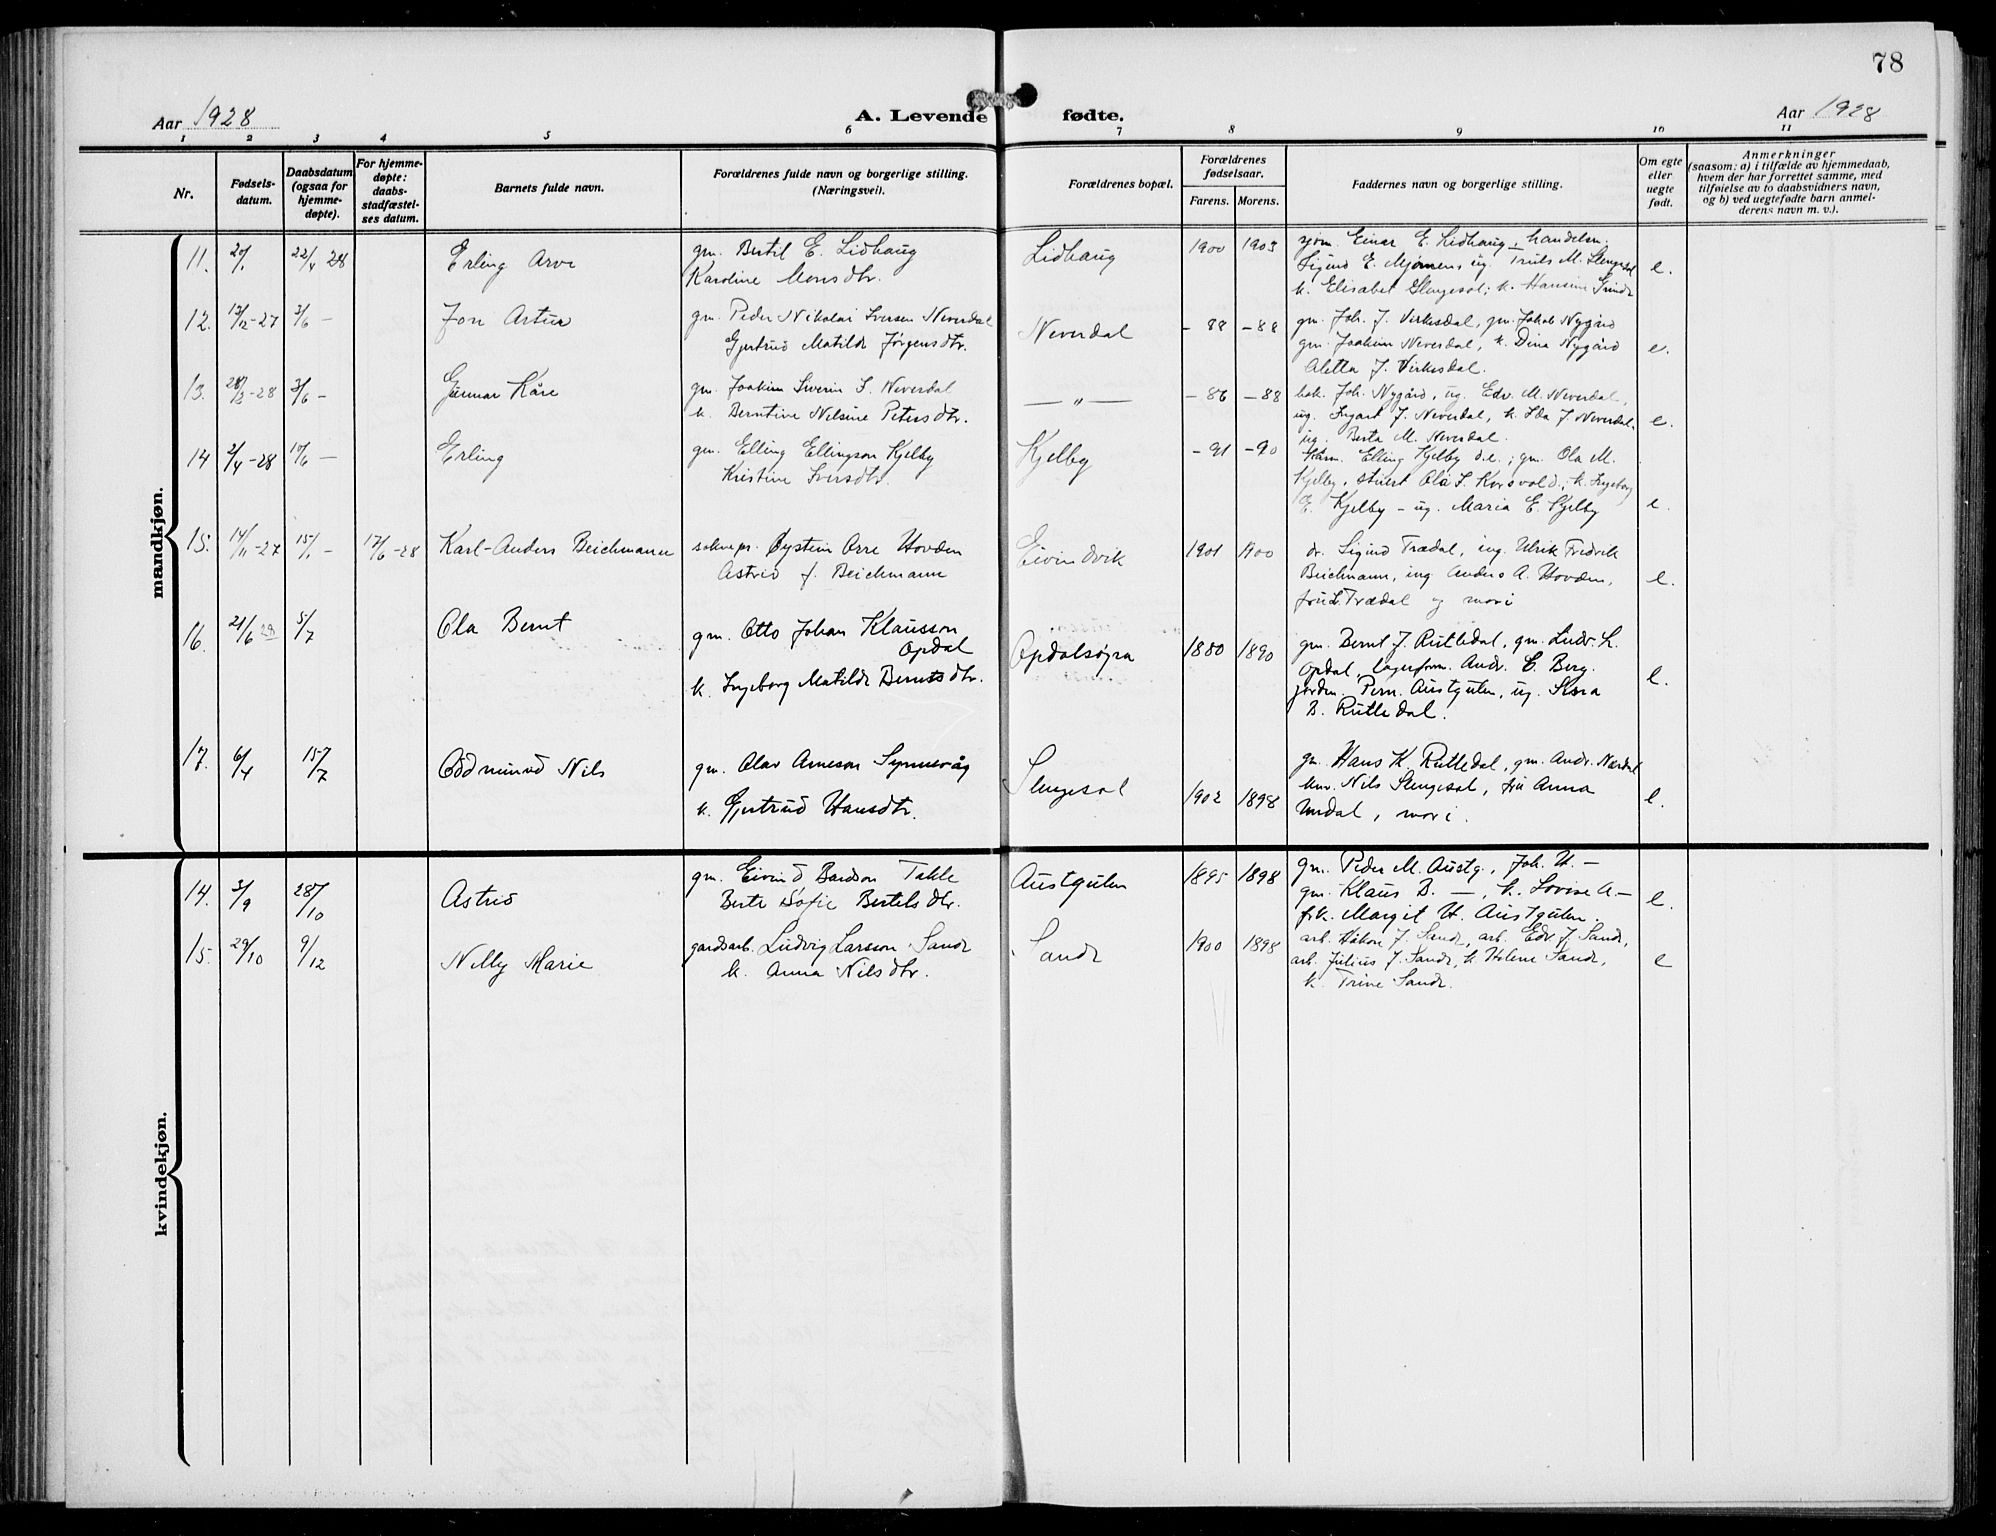 78
Aar 1928
A. Levende fødte.
Aar 1928
1 2 3 4 5 6 7 8 9 10 11
Nr.
Fødsels-
datum.
Daabsdatum
(ogsaa for
hjemme-
døpte).
For hjemme-
døpte:
daabs-
stadfæstel-
ses datum.
Barnets fulde navn.
Forældrenes fulde navn og borgerlige stilling.
(Næringsveil).
Forældrenes bopæl.
Forældrenes
fødselsaar.
Farens. Morens.
Faddernes navn og borgerlige stilling.
Om egte
eller
uegte
født.
Anmerkninger
(saasom: a) i tilfælde av hjemmedaab,
hvem der har forrettet samme, med
tilføielse av to daabsvidners navn,
og b) ved uegtefødte barn anmel-
derens navn m. v.).
mandkjøn.
11. 20/1 22/4 28 Erling Arve
gm. Bertil E. Lidhaug
Karoline Monsdtr.
Lidhaug 1900 1903
Einar E. Lidhaug, handelsm.
Sigurd E. Mjømens ug. Truls M. Slengesol
k. Elisabet Slengesol; k. Hansine Grinde
e.
12. 13/12-27 3/6 — Jon Artur
gm. Peder Nikolai Iversen Neverdal
Gjertrud Matilde Jørgensdtr.
Neverdal - 88 - 88
gm. Joh. J. Virkesdal, gm. Jakob Nygård
gm. Joakim Neverdal, k. Dina Nygård
Aletta J. Virkesdal.
e.
13. 28/2-28 3/6 — Gunnar Kåre
gm. Joakim Severin S. Neverdal
k. Berntine Nilsine Petersdtr.
— " — - 86 - 88
Joh. Nygård, ug. Edv. M. Neverdal,
ug. Ingart J. Neverdal, k. Ida J Neverdal.
ug. Berta M. Neverdal.
e.
14 2/4-28 17/6 — Erling
gm. Elling Ellingson Kjelby
Kristine Iversdtr.
Kjelby - 91 - 90
Elling Kjelby d.e.; gm. Ola M.
Kjelby, Ola S. Korsvold; k. Ingeborg
E. Kjelby - ug. Maria E. Kjelby
e.
15. 14/11-27 15/1 — 17/6-28 Karl-Anders Beichmann
soknepr. Øystein Orre Hovden
Astrid f. Beichmann
Eivindvik 1901 1900
dr. Sigurd Trædal, ing. Ulrik Fredrik
Beichmann, ing Anders A. Hovden,
fru L. Trædal og mori
e.
16. 21/6 28 5/7 Ola Bernt
gm. Otto Johan Klausson
Opdal
k. Ingeborg Matilde Berntsdtr.
Opdalsøyra 1880 1890
gm. Bernt J. Rutledal, gm. Ludv. L.
Opdal, lagerform. Andr. C. Berg.
jordm. Pern. Austgulen, ug. Kara
B. Rutledal.
e.
17. 6/4 15/7 Oddmund Nils
gm. Olav Arneson Synnevåg
k. Gjertrud Hansdtr.
Slengesol 1902 1898
gm. Hans K. Rutledal, gm. Andr. Nærdal
Nils Slengesol, fru Anna
Undal, mori.
e.
kvindekjøn.
14. 3/9 28/10 Astrid
gm. Eivind Bardson Takle
Berte Sofie Bertelsdtr.
Austgulen 1895 1898
gm. Peder M. Austg., Joh. H. —
gm. Klaus B. —, k. Lovise A. —
frk. Margit H. Austgulen.
e.
15. 29/10 9/12 Nelly Marie
gardsarb. Ludvig Larsson Sande
k. Anna Nilsdtr.
Sande 1900 1898
arb. Håkon J. Sande, arb. Edv. J. Sande,
arb. Julius J. Sande, k. Helene Sande,
k. Trine Sande.
e